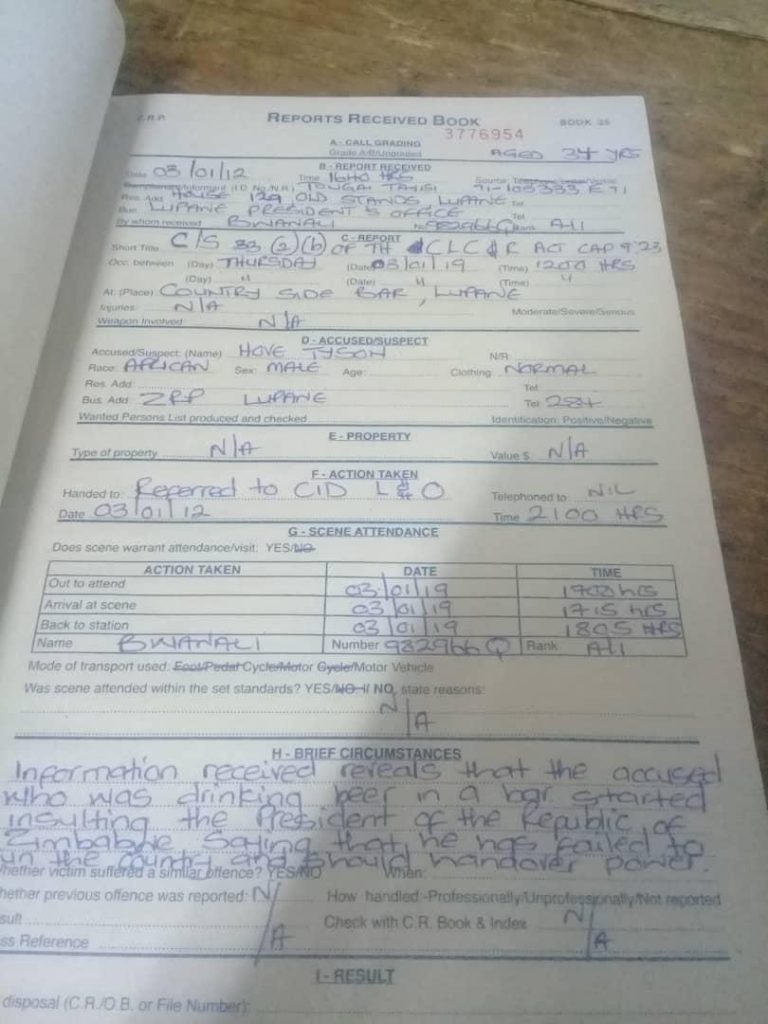 Z.R.P.
REPORTS RECEIVED BOOK
BOOK 25
3776954
A - CALL GRADING
Grade A/B/Ungraded
AGED 34 YRS
B - REPORT RECEIVED
Date 03/01/12 Time 1640 HRS Source: Telephone/Letter/Visitor
Complainant/Informant (I.D. No./N.R.) TONGAI TAHISI 71-105333 E 71
Res. Add HOUSE 129 OLD STANDS, LUPANE Tel
Bus: LUPANE PRESIDENT'S OFFICE Tel
By whom received BWANALI No 982966Q Rank A/I
C - REPORT
Short Title C/S 33 (2)(b) OF TH CLC & R ACT CAP 9:23
Occ. between (Day) THURSDAY (Date) 03/01/19 (Time) 1200 HRS
(Day) " (Date) " (Time) "
At: (Place) COUNTRY SIDE BAR, LUPANE
Injuries: N/A Moderate/Severe/Serious
Weapon Involved N/A
D - ACCUSED/SUSPECT
Accused/Suspect: (Name) HOVE TYSON N/R
Race: AFRICAN Sex: MALE Age: Clothing NORMAL
Res. Add: Tel
Bus. Add ZRP LUPANE Tel 284
Wanted Persons List produced and checked Identification: Positive/Negative
E - PROPERTY
Type of property N/A Value $ N/A
F - ACTION TAKEN
Handed to: Referred to CID L & O Telephoned to NIL
Date 03/01/12 Time 2100 HRS
G - SCENE ATTENDANCE
Does scene warrant attendance/visit: YES/NO
ACTION TAKEN DATE TIME
Out to attend 03/01/19 1700 hrs
Arrival at scene 03/01/19 1715 hrs
Back to station 03/01/19 1805 HRS
Name BWANALI Number 982966Q Rank A/I
Mode of transport used: Foot/Pedal Cycle/Motor Cycle/Motor Vehicle
Was scene attended within the set standards? YES/NO If NO, state reasons:
N/A
H - BRIEF CIRCUMSTANCES
Information received reveals that the accused
who was drinking beer in a bar started
insulting the President of the Republic of
Zimbabwe saying that he has failed to
run the country and should handover power.
hether victim suffered a similar offence? YES/NO When:
hether previous offence was reported: N/A How handled:-Professionally/Unprofessionally/Not reported
sult Check with C.R. Book & Index N/A
ss Reference
I - RESULT
disposal (C.R./O.B. or File Number):